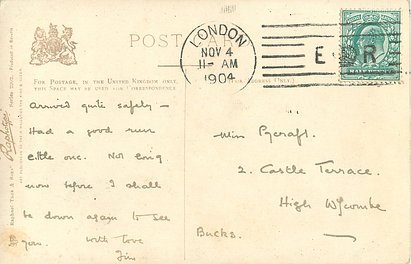 POST CARD
FOR POSTAGE, IN THE UNITED KINGDOM ONLY,
THIS SPACE MAY BE USED FOR CORRESPONDENCE
LONDON
NOV 4
11- AM
1904
E R
Arrived quite safely -
Had a good run
Not long
now before I shall
be down again to see
you. with love
Jim
Miss Pycraft.
2. Castle Terrace.
High Wycombe
Bucks.
Raphael Tuck & Sons'